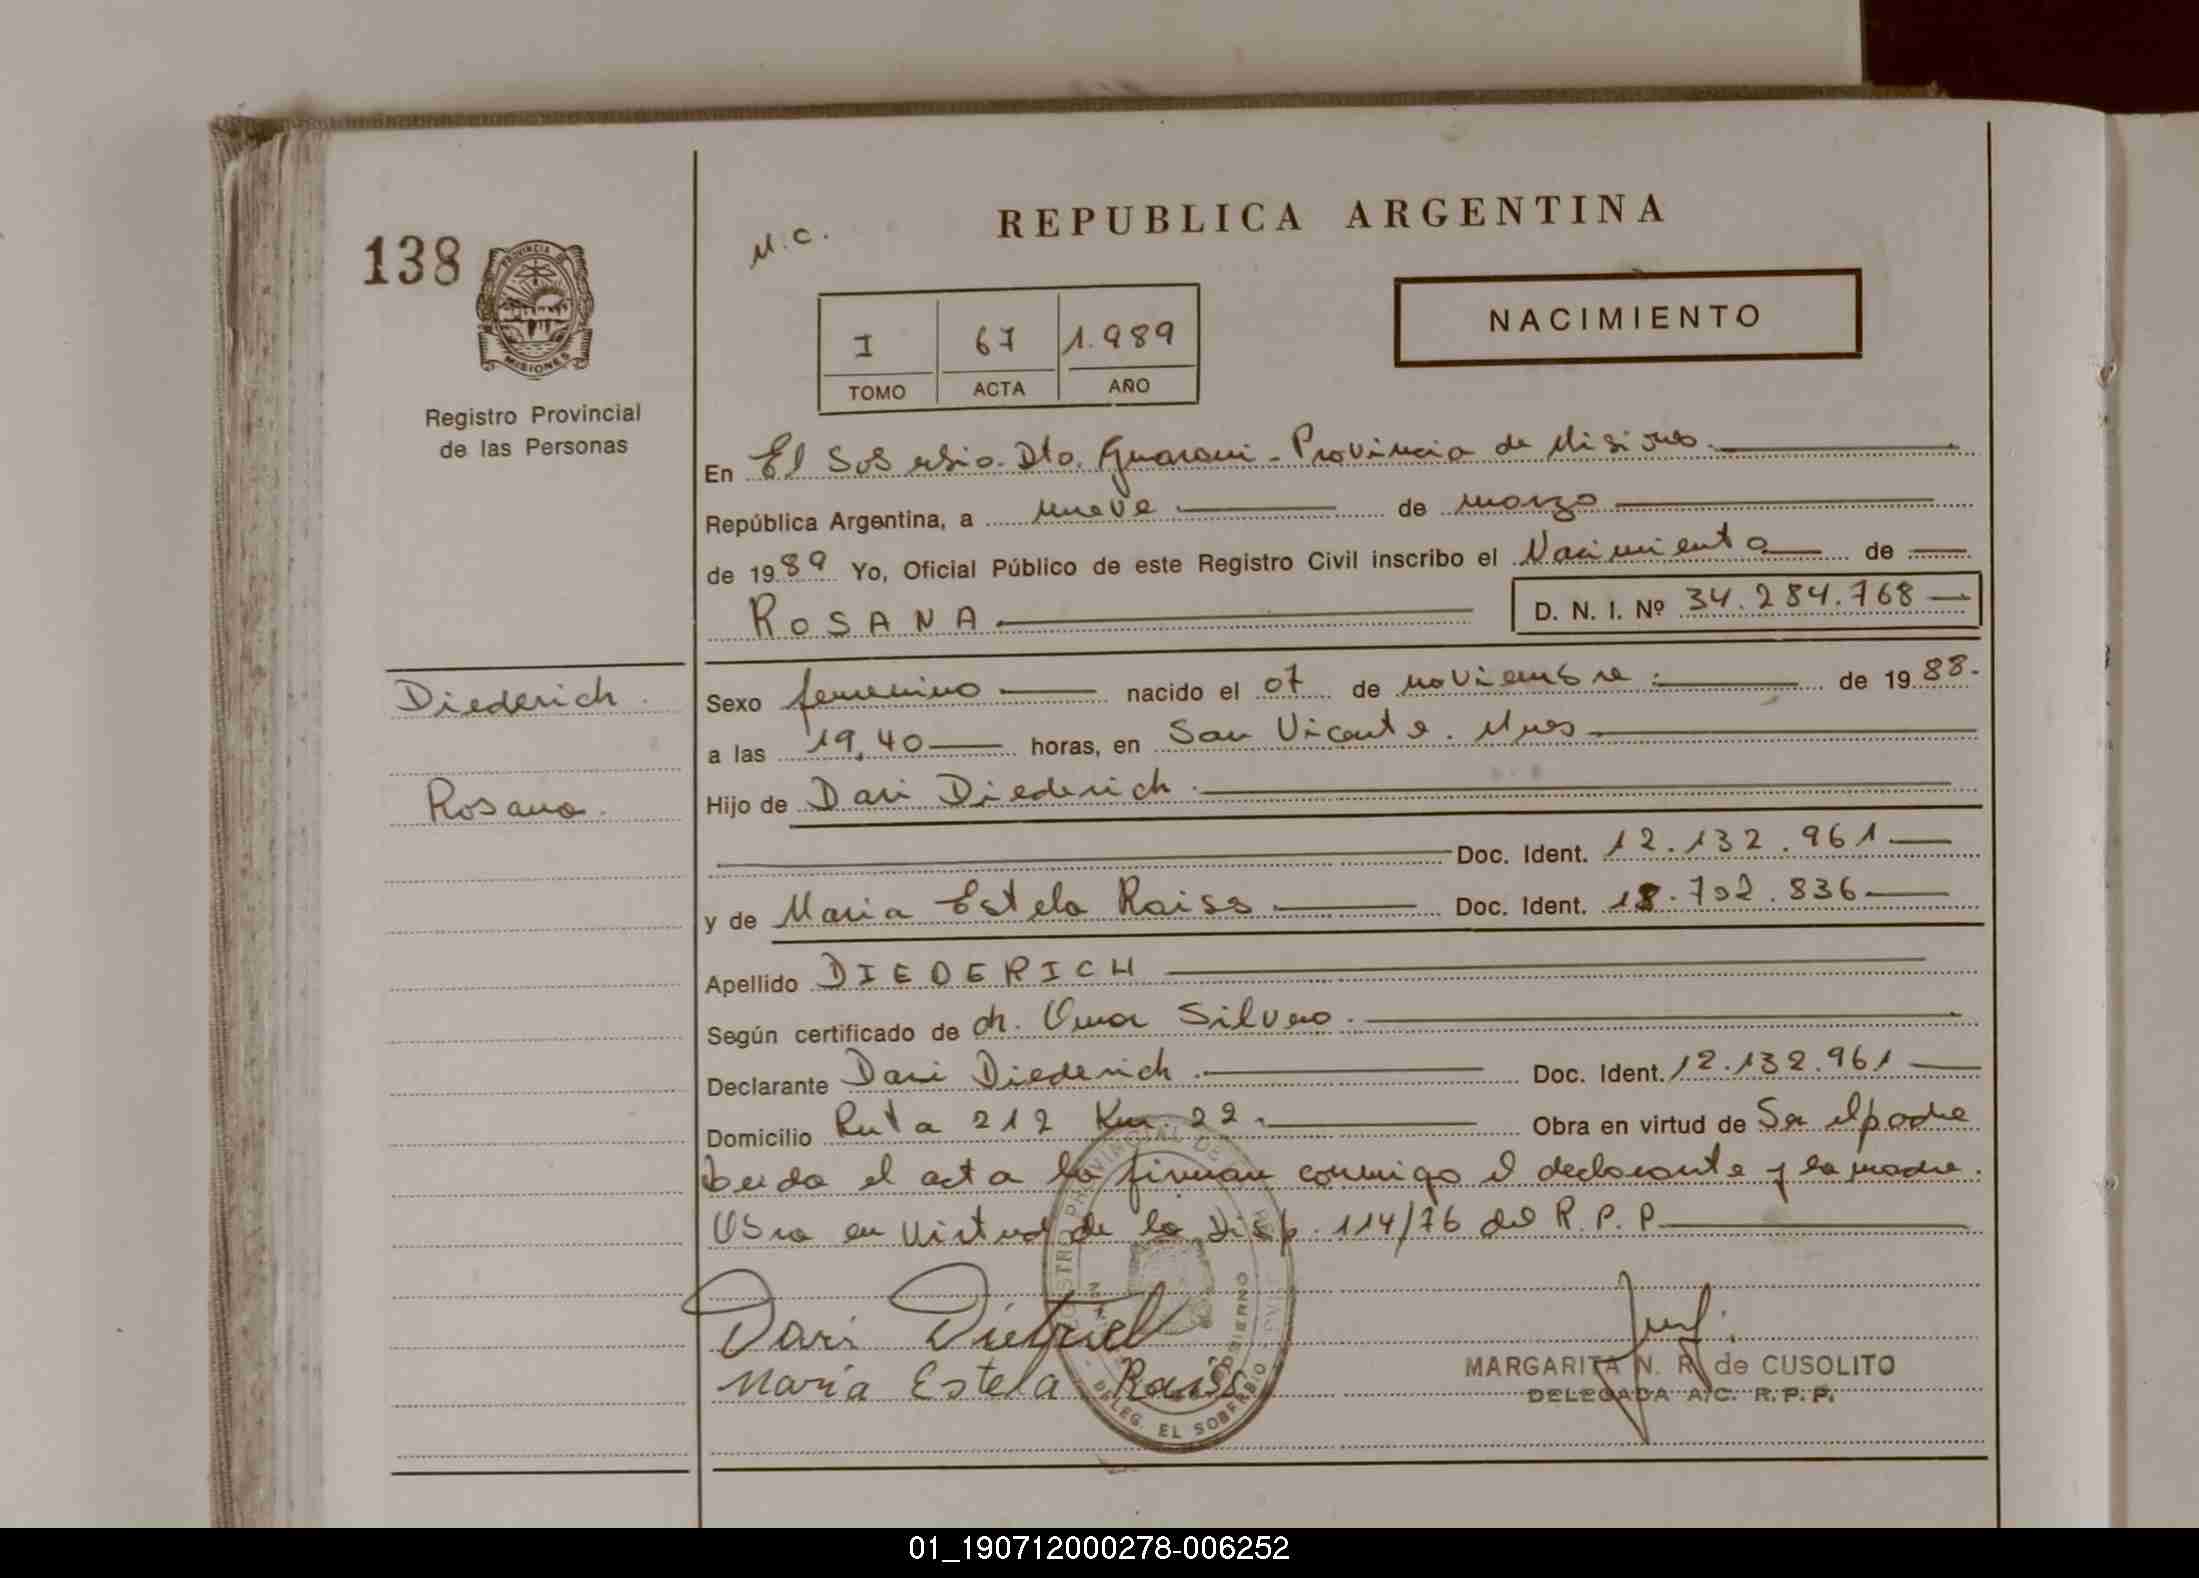 138
PROVINCIA DE
MISIONES
Registro Provincial
de las Personas
Diederich.
Rosana.
M.C.
REPUBLICA ARGENTINA
NACIMIENTO
I 67 1.989
TOMO ACTA AÑO
En El Soberbio. Dto. Guarani - Provincia de Misiones.
República Argentina, a nueve de marzo
de 1989 Yo, Oficial Público de este Registro Civil inscribo el Nacimiento de
ROSANA D. N. I. Nº 34.284.768
Sexo femenino nacido el 07 de noviembre. de 1988.
a las 19,40 horas, en San Vicente. Mnes
Hijo de Dari Diederich.
Doc. Ident. 12.132.961
y de Maria Estela Raiss Doc. Ident. 18.702.836
Apellido DIEDERICH
Según certificado de dr. Omar Silvero.
Declarante Dari Diederich. Doc. Ident. 12.132.961
Domicilio Ruta 212 Km 22. Obra en virtud de Ser el padre
Leida el acta la firman conmigo el declarante y la madre.
Obra en virtud de la Disp. 114/76 del R.P.P.
Dari
Maria Estela Raiss
DELEG. EL SOBERBIO
MARGARITA N. R. de CUSOLITO
DELEGADA A/C. R.P.P.
01_190712000278-006252